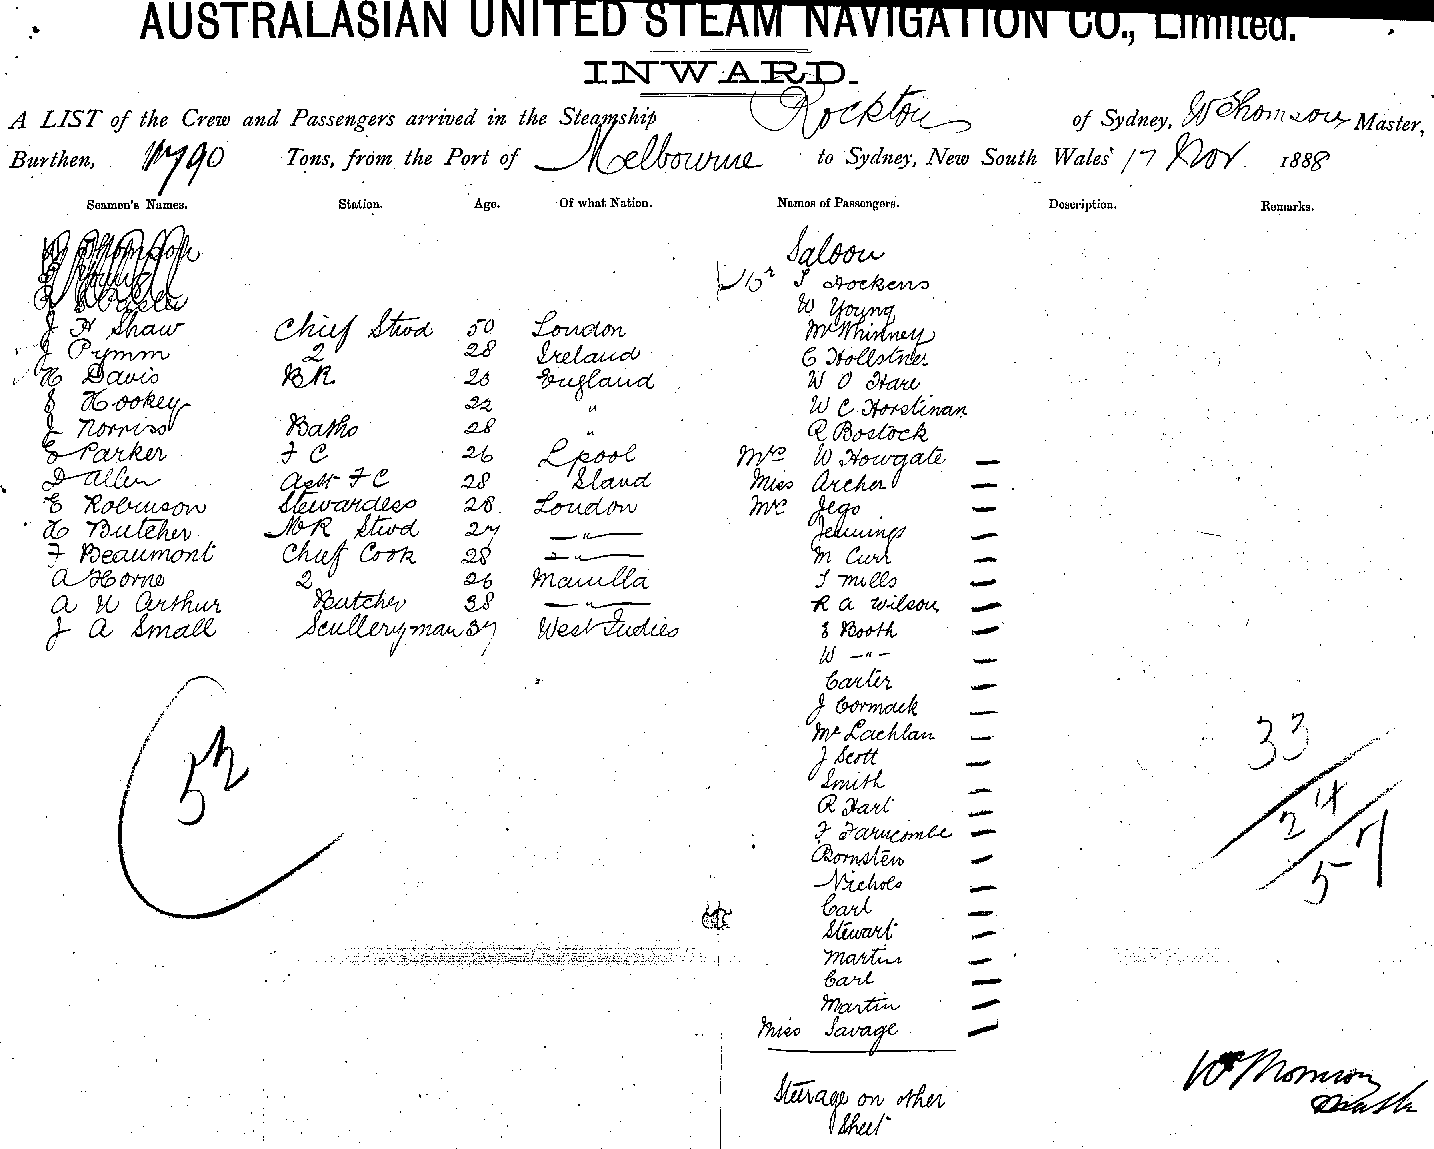 AUSTRALASIAN UNITED STEAM NAVIGATION CO., Limited.
INWARD.
A LIST of the Crew and Passengers arrived in the Steamship Rockton of Sydney, W Thomson Master,
Burthen, 1790 Tons, from the Port of Melbourne to Sydney, New South Wales 17 Nov. 1888
Seamen's Names. Station. Age. Of what Nation. Names of Passengers. Description. Remarks.
J H Shaw Chief Stwd 50 London
J Pymm 2 28 Ireland
H Davis BR 25 England
S Hookey 22 "
J Norriss Baths 28 "
E Parker F C 26 Lpool
D Allen Asst F C 28 Sland
E Robinson Stewardess 28 London
H Butcher Stwd 27 — " —
F Beaumont Chief Cook 28 — " —
A Horne 2 26 Manilla
A W Arthur Butcher 38 — " —
J A Small Sculleryman 37 West Indies
52
Saloon
Hockens
W Young
McWhinney
C Hollstner
W O Hare
W C Horstinan
R Bostock
Mrs W Howgate —
Miss Archer —
Mrs Jego —
Jennings —
M Curr —
T Mills —
R A Wilson —
E Booth —
W — " — —
Carter —
J Cormack —
McLachlan —
J Scott —
Smith —
R Hart —
F Farncombe —
Bornsten —
Nichols —
Carl —
Stewart —
Martin —
Carl —
Martin —
Miss Savage —
Steerage on other
Sheet
33
24
57
W Thomson
Master